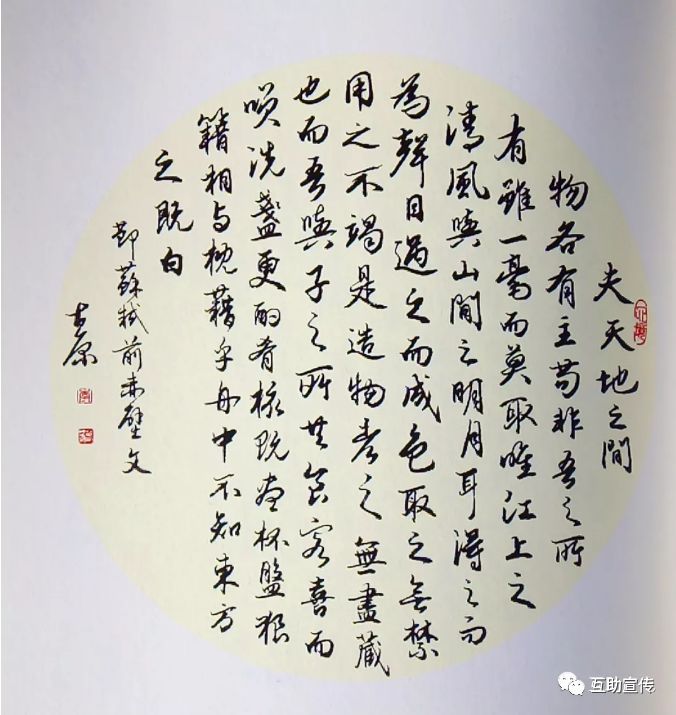 夫天地之間
物各有主苟非吾之所
有雖一毫而莫取唯江上之
清風與山間之明月耳得之而
為聲目過之而成色取之無禁
用之不竭是造物者之無盡藏
也而吾與子之所共食客喜而
咲洗盞更酌肴核既盡杯盤狼
籍相与枕藉乎舟中不知東方
之既白
節蘇軾前赤壁文
原
互助宣传